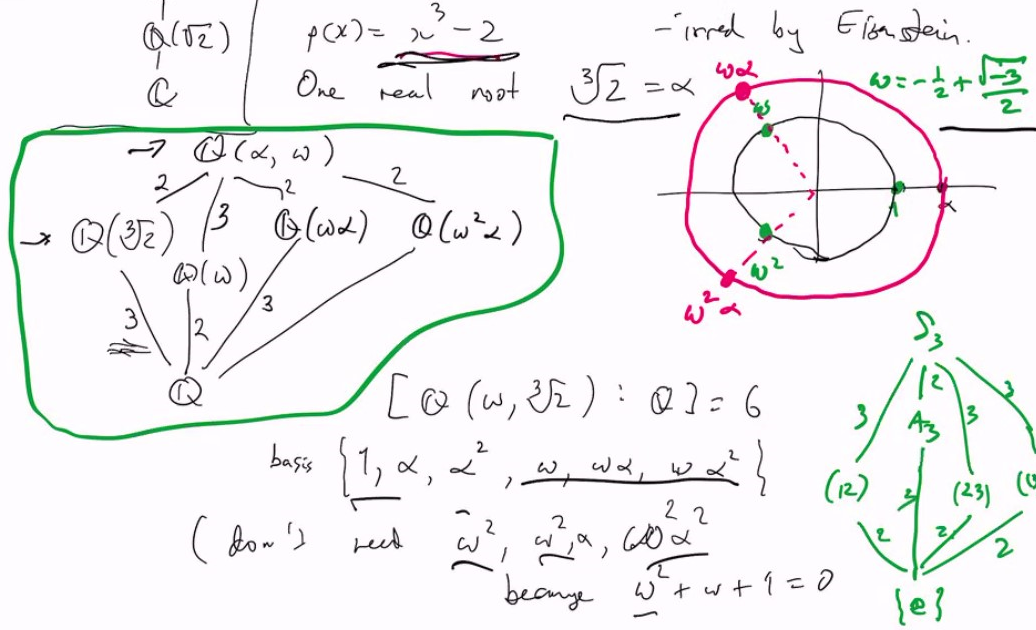 Q(√2)
Q
p(x) = x³ - 2
- irred by Eisenstein.
One real root
∛2 = α
ω = -1/2 + √-3/2
ωα
ω
1
α
ω²
ω²α
→ Q(α, ω)
2 3 2 2
→ Q(∛2) Q(ωα) Q(ω²α)
Q(ω)
3 2 3
Q
[Q(ω, ∛2) : Q] = 6
basis {1, α, α², ω, ωα, ωα²}
(don't need ω², ω²α, ω²α²
because ω² + ω + 1 = 0
S₃
3 2 3 3
A₃
(12) (23)
2 3 2 2
{e}